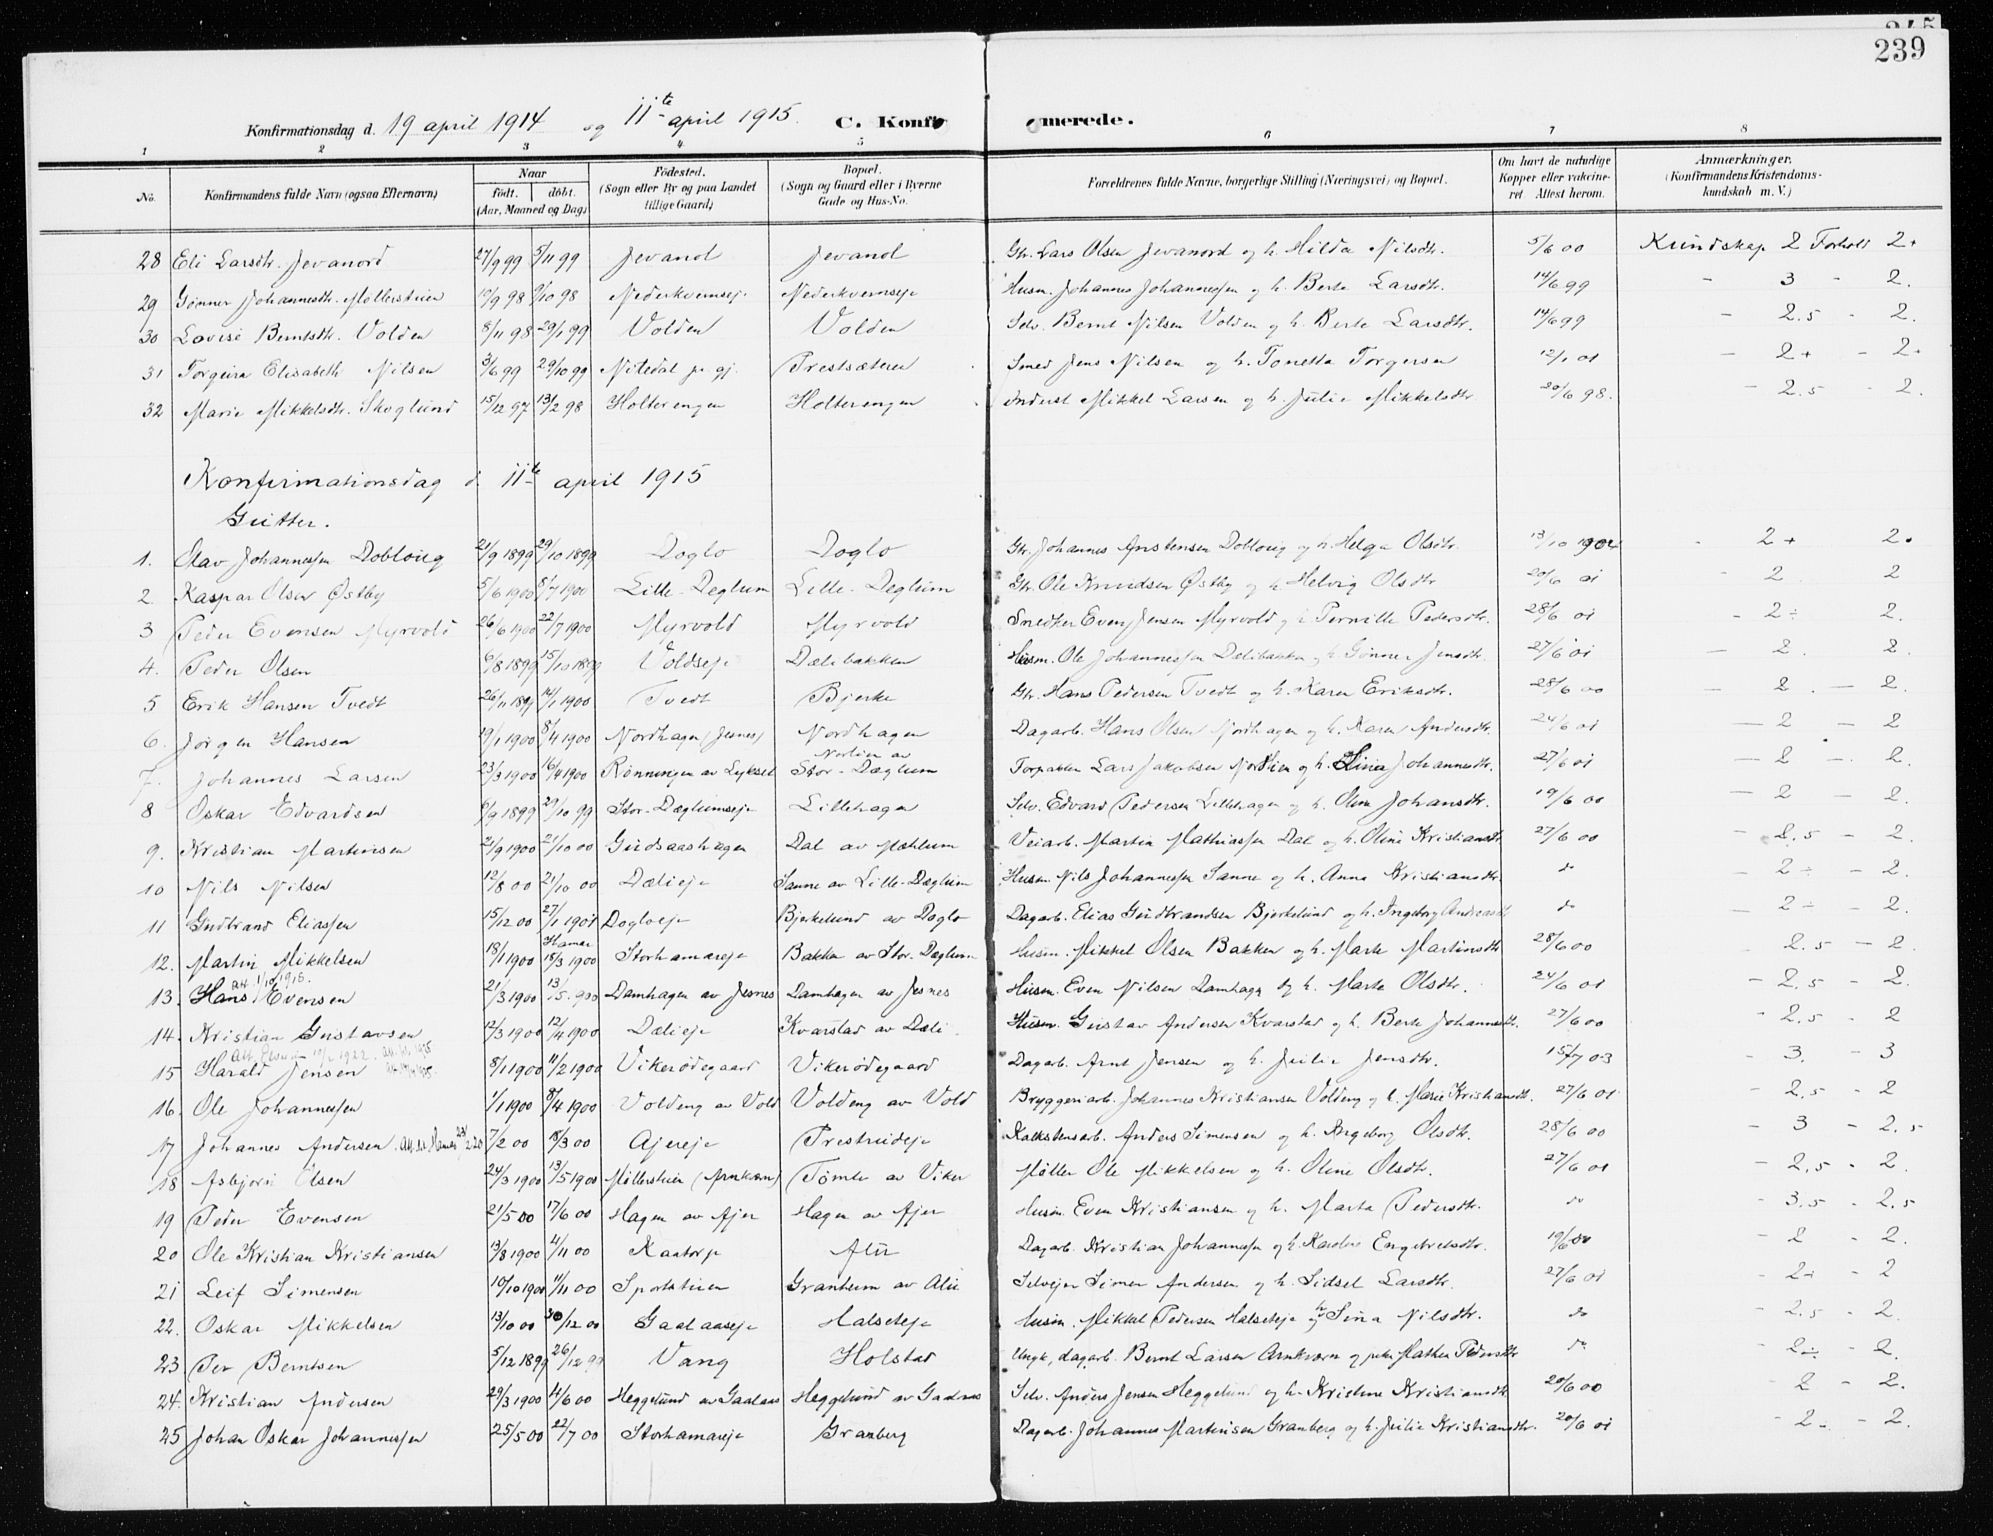 239
Konfirmationsdag d. 19 april 1914 og 11te april 1915. C. Konfirmerede.
1 2 3 4 5 6 7 8
No. Konfirmandens fulde Navn (ogsaa Efternavn) Naar födt. döbt. (Aar, Maaned og Dag) Födested. (Sogn eller By og paa Landet tillige Gaard) Bopæl. (Sogn og Gaard eller i Byerne Gade og Hus-No. Forældrenes fulde Navne, borgerlige Stilling (Næringsvei) og Bopæl. Om havt de naturlige Kopper eller vakcineret Attest herom. Anmærkninger. (Konfirmandens Kristendomskundskab m. V.)
28 Eli Larsdtr. Jevanord 27/9 99 5/11 99 Jevanol Jevanol Gbr. Lars Olsen Jevanord og h. Hilda Nilsdtr. 5/6 00 Kundskap 2 Forhold 2+
29 Gønner Johannesdtr. Møllerstuen 10/9 98 9/10 98 Nederkvernseje Nederkvernseje Husm. Johannes Johannessen og h. Berte Larsdtr. 14/6 99 - 3 - 2.
30 Lovise Berntsdtr. Volden 8/11 98 29/1 99 Volden Volden Selv. Bernt Nilsen Volden og h. Berte Larsdtr. 14/6 99 - 2.5 - 2.
31 Torgeira Elisabeth Nilsen 3/6 99 29/10 99 Nitedal pr gj. Prestsæteren Smed Jens Nilsen og h. Tonetta Torgersen 12/1 01 - 2+ - 2+
32 Marie Mikkelsdtr. Skoglund 15/12 97 13/2 98 Holterengen Holterengen Inderst Mikkel Larsen og h. Julie Mikkelsdtr 20/6 98. - 2.5 - 2.
Konfirmationsdag d 11te april 1915
Gutter.
1. Olav Johannessen Dobloug 21/9 1899 29/10 1899 Doglo Doglo Gbr. Johannes Anstensen Dobloug og h. Helga Olsdtr. 13/10 1904 - 2+ 2.
2. Kaspar Olsen Østby 5/6 1900 8/7 1900 Lille-Deglum Lille-Deglum Gbr. Ole Knudsen Østby og h. Helvig Olsdtr 20/6 01 - 2 2
3 Peder Evensen Myrvold 26/6 1900 22/7 1900 Myrvold Myrvold Snedker Even Jensen Myrvold og h Pernille Pedersdtr. 28/6 01 - 2÷ 2.
4. Peder Olsen 6/8 1899 15/10 1899 Voldseje Dælibakken Husm. Ole Johannessen Delibakken og h. Gønner Jensdtr. 27/6 01 - 2. 2.
5 Erik Hansen Tvedt 26/11 1899 14/1 1900 Tvedt Bjerke Gbr. Hans Pedersen Tvedt og h. Karen Eriksdtr. 28/6 00 - 2. - 2.
6. Jørgen Hansen 19/1 1900 8/4 1900 Nordhagen (Jesnes) Nordhagen Dagarb. Hans Olsen Nordhagen og h. Karen Andersdtr. 24/6 01 - 2 - 2
7. Johannes Larsen 23/3 1900 16/4 1900 Rønningen av Lyksæt Norlien av Stor-Dæglum Torpakter Lars Jakobsen Norlien og h. Lina Johannesdtr. 27/6 01 - 2 - 2.
8 Oskar Edvardsen 6/9 1899 29/10 99 Stor-Dæglumseje Lillehagen Selv. Edvard Pedersen Lillehagen og h. Oline Johansdtr. 19/6 00 - 2 - 2.
9. Kristian Martinsen 2/9 1900 21/10 00 Gudsaashagen Dal av Mæhlum Veiarb. Martin Mathiassen Dal og h. Oline Kristiansdtr 27/6 00 - 2.5 - 2
10 Nils Nilsen 12/8 00 21/10 00 Dælieje Sanne av Lille-Dæglum Husm. Nils Johannessen Sanne og h. Anna Kristiansdtr. do - 2÷ - 2.
11 Gudbrand Eliassen 15/12 00 27/1 1901 Dogloeje Bjerkelund av Doglo Dagarb. Elias Gudbrandsen Bjerkelund og h. Ingeborg Andreasdtr do - 2÷ - 2.
12. Martin Mikkelsen 18/1 1900 Hamar 15/3 1900 Storhamareje Bakken av Stor. Dæglum Husm. Mikkel Olsen Bakken og h. Marte Martinsdtr 28/6 00 - 2.5 - 2
att. 1/10 1915.
13. Hans Evensen 21/3 1900 13/5 1900 Damhagen av Jesnes Damhagen av Jesnes Husm. Even Nilsen Damhagen og h. Marte Olsdtr. 24/6 01 - 2.5 - 2.
14. Kristian Gustavsen 12/3 1900 12/4 1900 Dælieje Kvarstad av Dæli. Husm. Gustav Andersen Kvarstad og h. Berte Johannesdtr. 27/6 00 - 2.5 - 2
15 Harald Jensen 8/1 1900 11/2 1900 Vikerødegaard Vikerødegaard Dagarb. Arnt Jensen og h. Julie Jensdtr. 15/7 03 - 3. - 3
16. Ole Johannessen 1/1 1900 8/4 1900 Voldeng av Vold Voldeng av Vold Bryggeriarb. Johannes Kristiansen Voldeng og h. Marie Kristiansdtr. 27/6 01 - 2.5 - 2
17 Johannes Andersen 7/2 00 18/3 00 Ajereje Prestrudeje Kalkstensarb. Anders Simensen og h. Ingeborg Olsdtr. 28/6 00 - 3 - 2.5
18 Asbjørn Olsen 24/3 1900 13/5 1900 Møllerstuen (Arnkværn) Tømte av Viker Møller Ole Mikkelsen og h. Oline Olsdtr. 27/6 01 - 2.5 - 2.
19 Peder Evensen 21/5 00 17/6 00 Hagen av Ajer Hagen av Ajer Husm. Even Kristiansen og h. Marta Pedersdtr. do - 3.5 - 2.5
20 Ole Kristian Kristiansen 13/8 1900 4/11 00 Kaatorp Alu Dagarb. Kristian Johannessen og h. Karoline Engebretsdtr. 19/6 00 - 2 - 2.
21 Leif Simensen 10/10 1900 11/11 00 Sportstuen Granheim av Alu Selvejer Simen Andersen og h. Sidsel Larsdtr. 27/6 01 - 2÷ - 2
22. Oskar Mikkelsen 13/10 00 30/12 00 Gaalaaseje Halseteje Husm. Mikkel Pedersen Halseteje og h. Sina Nilsdtr. do - 2.5 - 2.
23 Per Berntsen 5/12 1899 26/12 99 Vang Holstad Ungk., dagarb. Bernt Larsen Arnkværn og pike Mathea Pedersdtr do - 2÷ - 2.
24. Kristian Andersen 29/3 1900 4/6 00 Heggelund av Gaalaas Heggelund av Gaalaas Selv. Anders Jensen Heggelund og h. Kristine Kristiansdtr 20/6 00 - 2 - 2.
25 Johan Oskar Johannessen 25/5 00 22/7 00 Storhamareje Granberg Dagarb. Johannes Martinsen Granberg og h. Julie Kristiansdtr. 20/6 01 - 2- - 2.